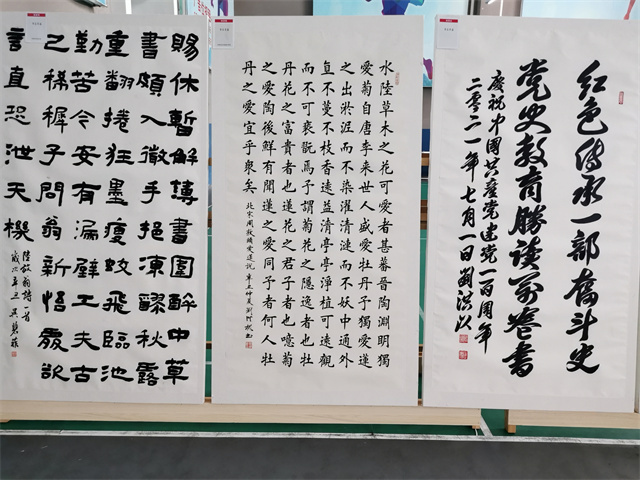 红色传承一部奮斗史
党史教育勝读万卷书
慶祝中国共產党建党一百周年
二零二一年七月一日劉洪义
水陸草木之花可愛者甚蕃晉陶淵明獨
愛菊自唐李来世人盛愛牡丹予獨愛蓮
之出淤泥而不染濯清漣而不妖中通外
直不蔓不枝香遠益清亭亭淨植可遠觀
而不可褻翫焉予謂菊花之隱逸者也牡
丹花之富貴者也蓮花之君子者也噫菊
之愛陶後鮮有聞蓮之愛同予者何人牡
丹之愛宜乎衆矣 北宋周敦頤愛蓮說 辛丑仲夏劉
賜休暫解簿書圍醉中草
書頗入微手挹凍醪秋露
重翻捲狂墨瘦蛟飛臨池
勤苦今安有漏壁工夫古
已稀穉子問翁新悟處欲
言直恐泄天機
陸放翁詩一首
歲次辛丑